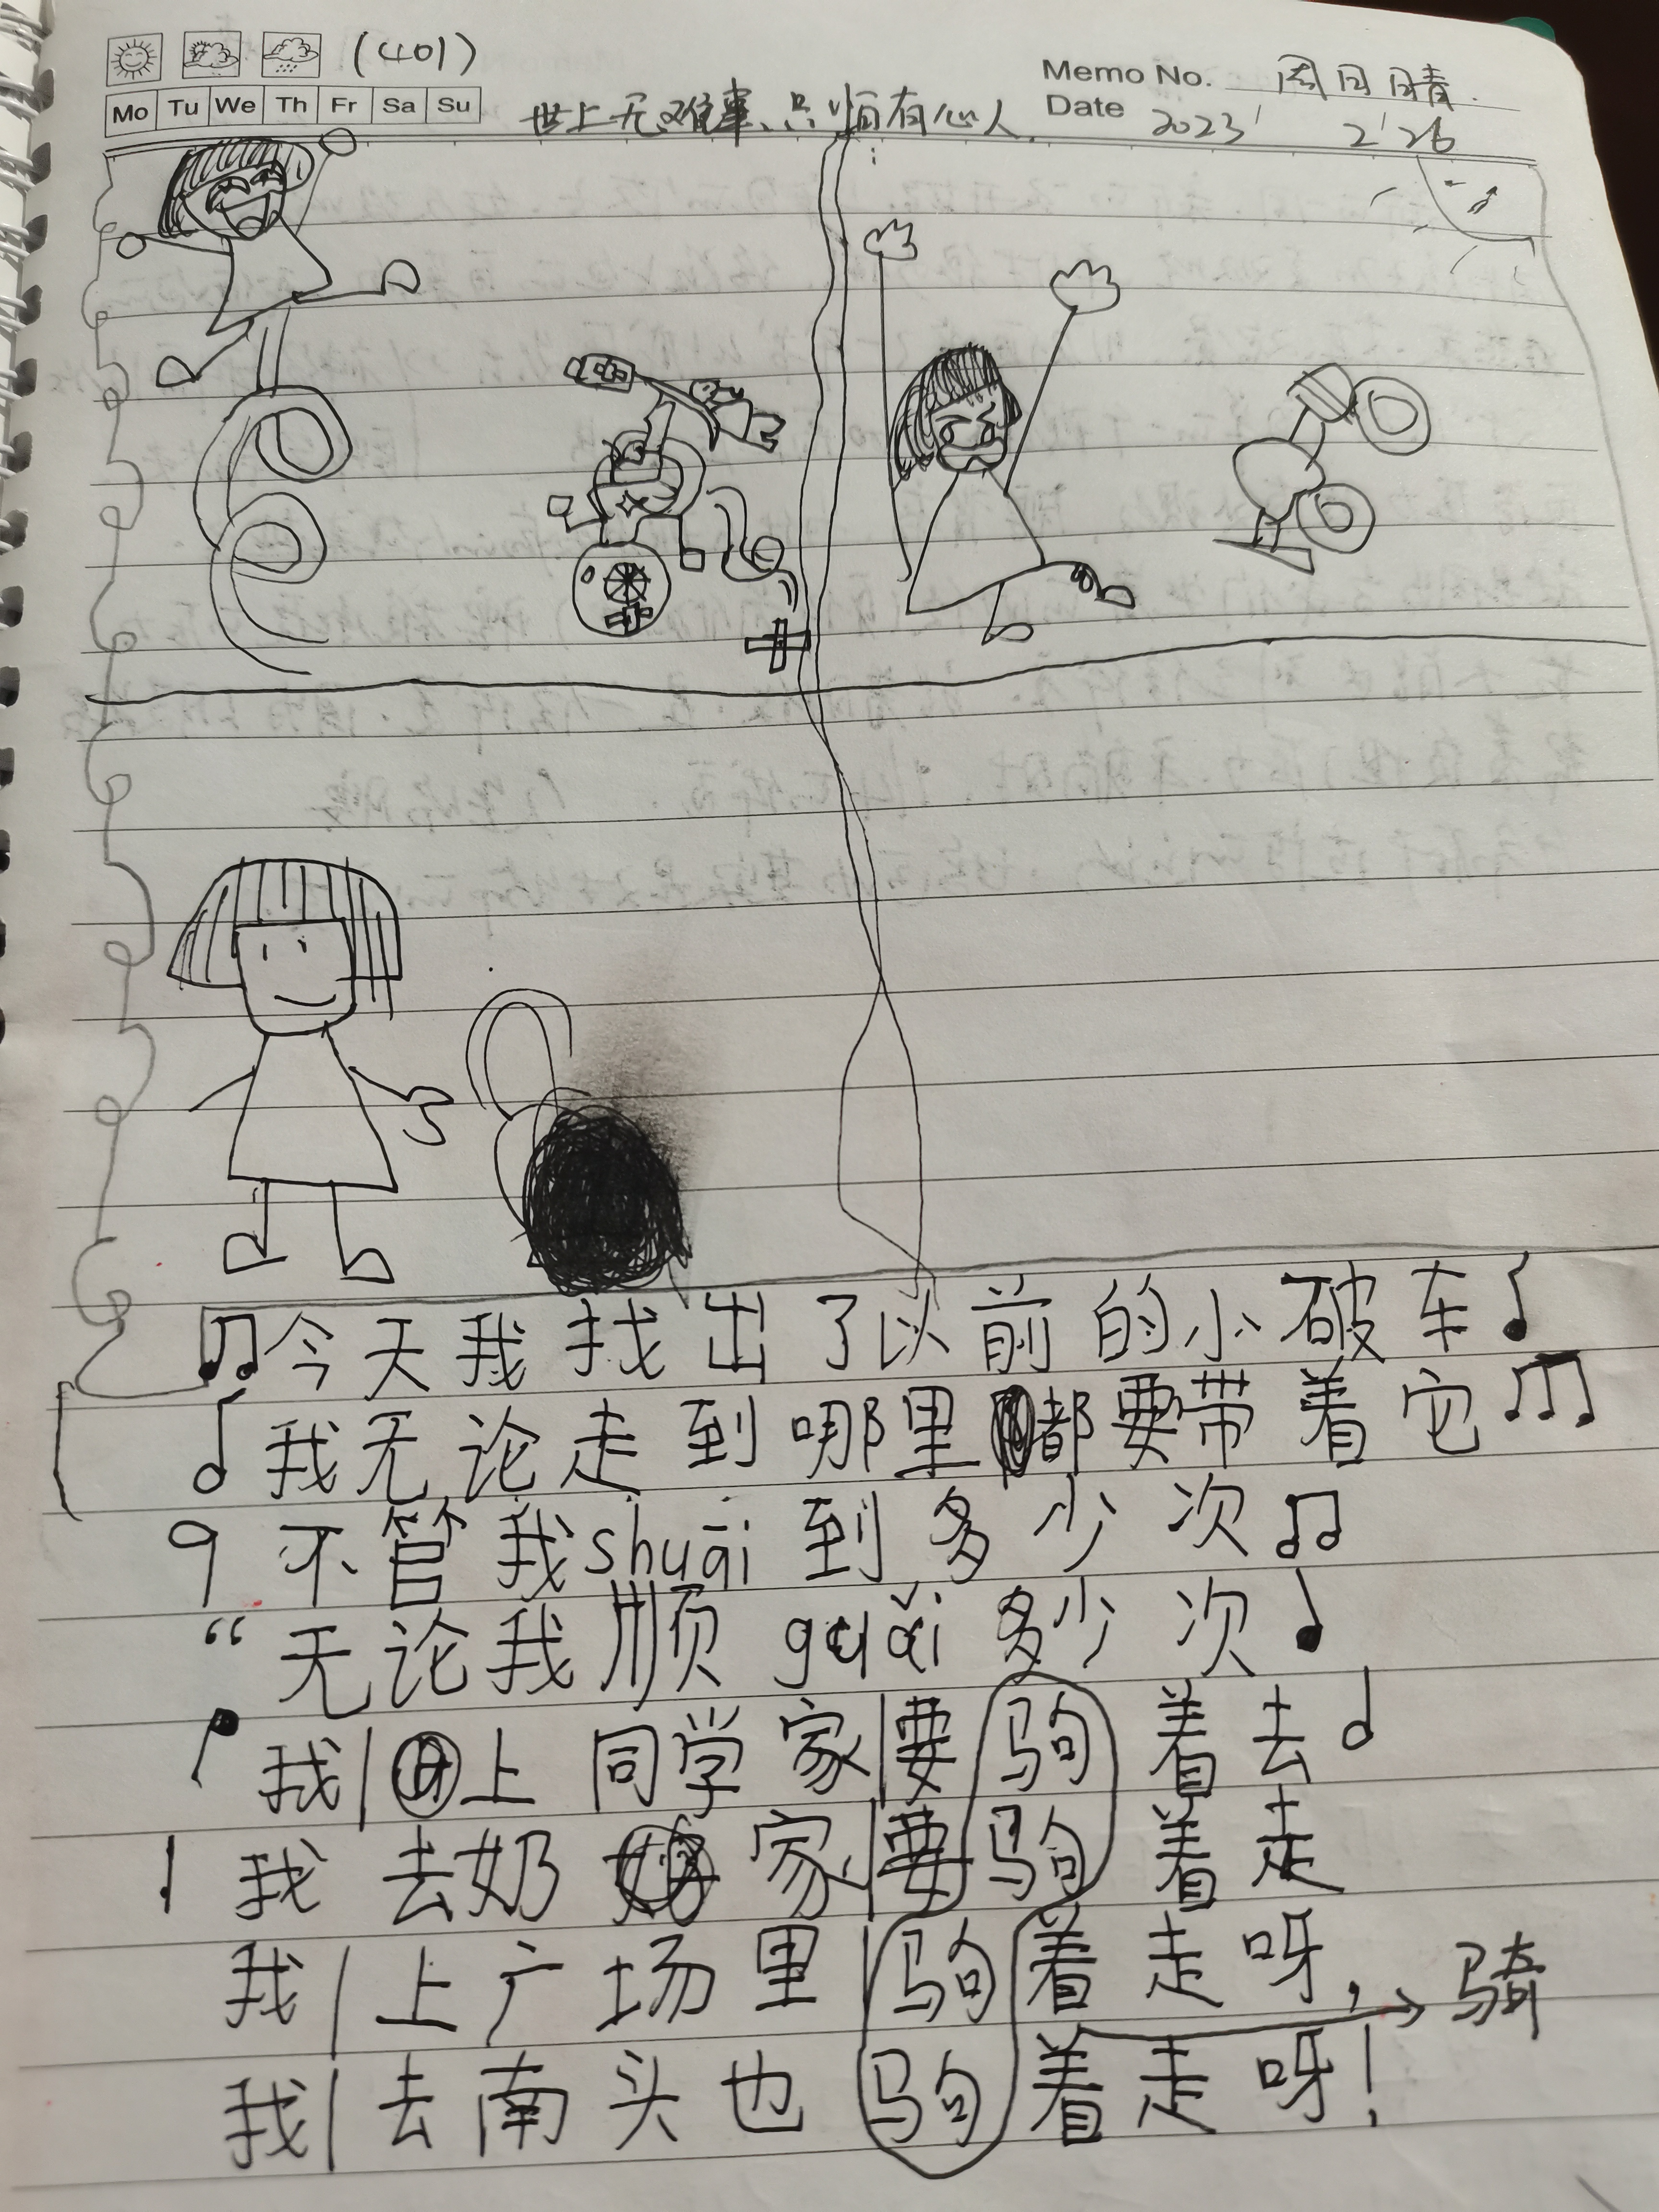 (401)
Memo No. 周日晴.
Mo Tu We Th Fr Sa Su
世上无难事、只怕有心人.
Date 2023' 2'26
今天我找出了以前的小破车
我无论走到哪里都要带着它
不管我shuāi到多少次
“无论我顺guǎi多少次
我上同学家要驹着去
我去奶奶家要驹着走
我上广场里驹着走呀,→骑
我去南头也驹着走呀!